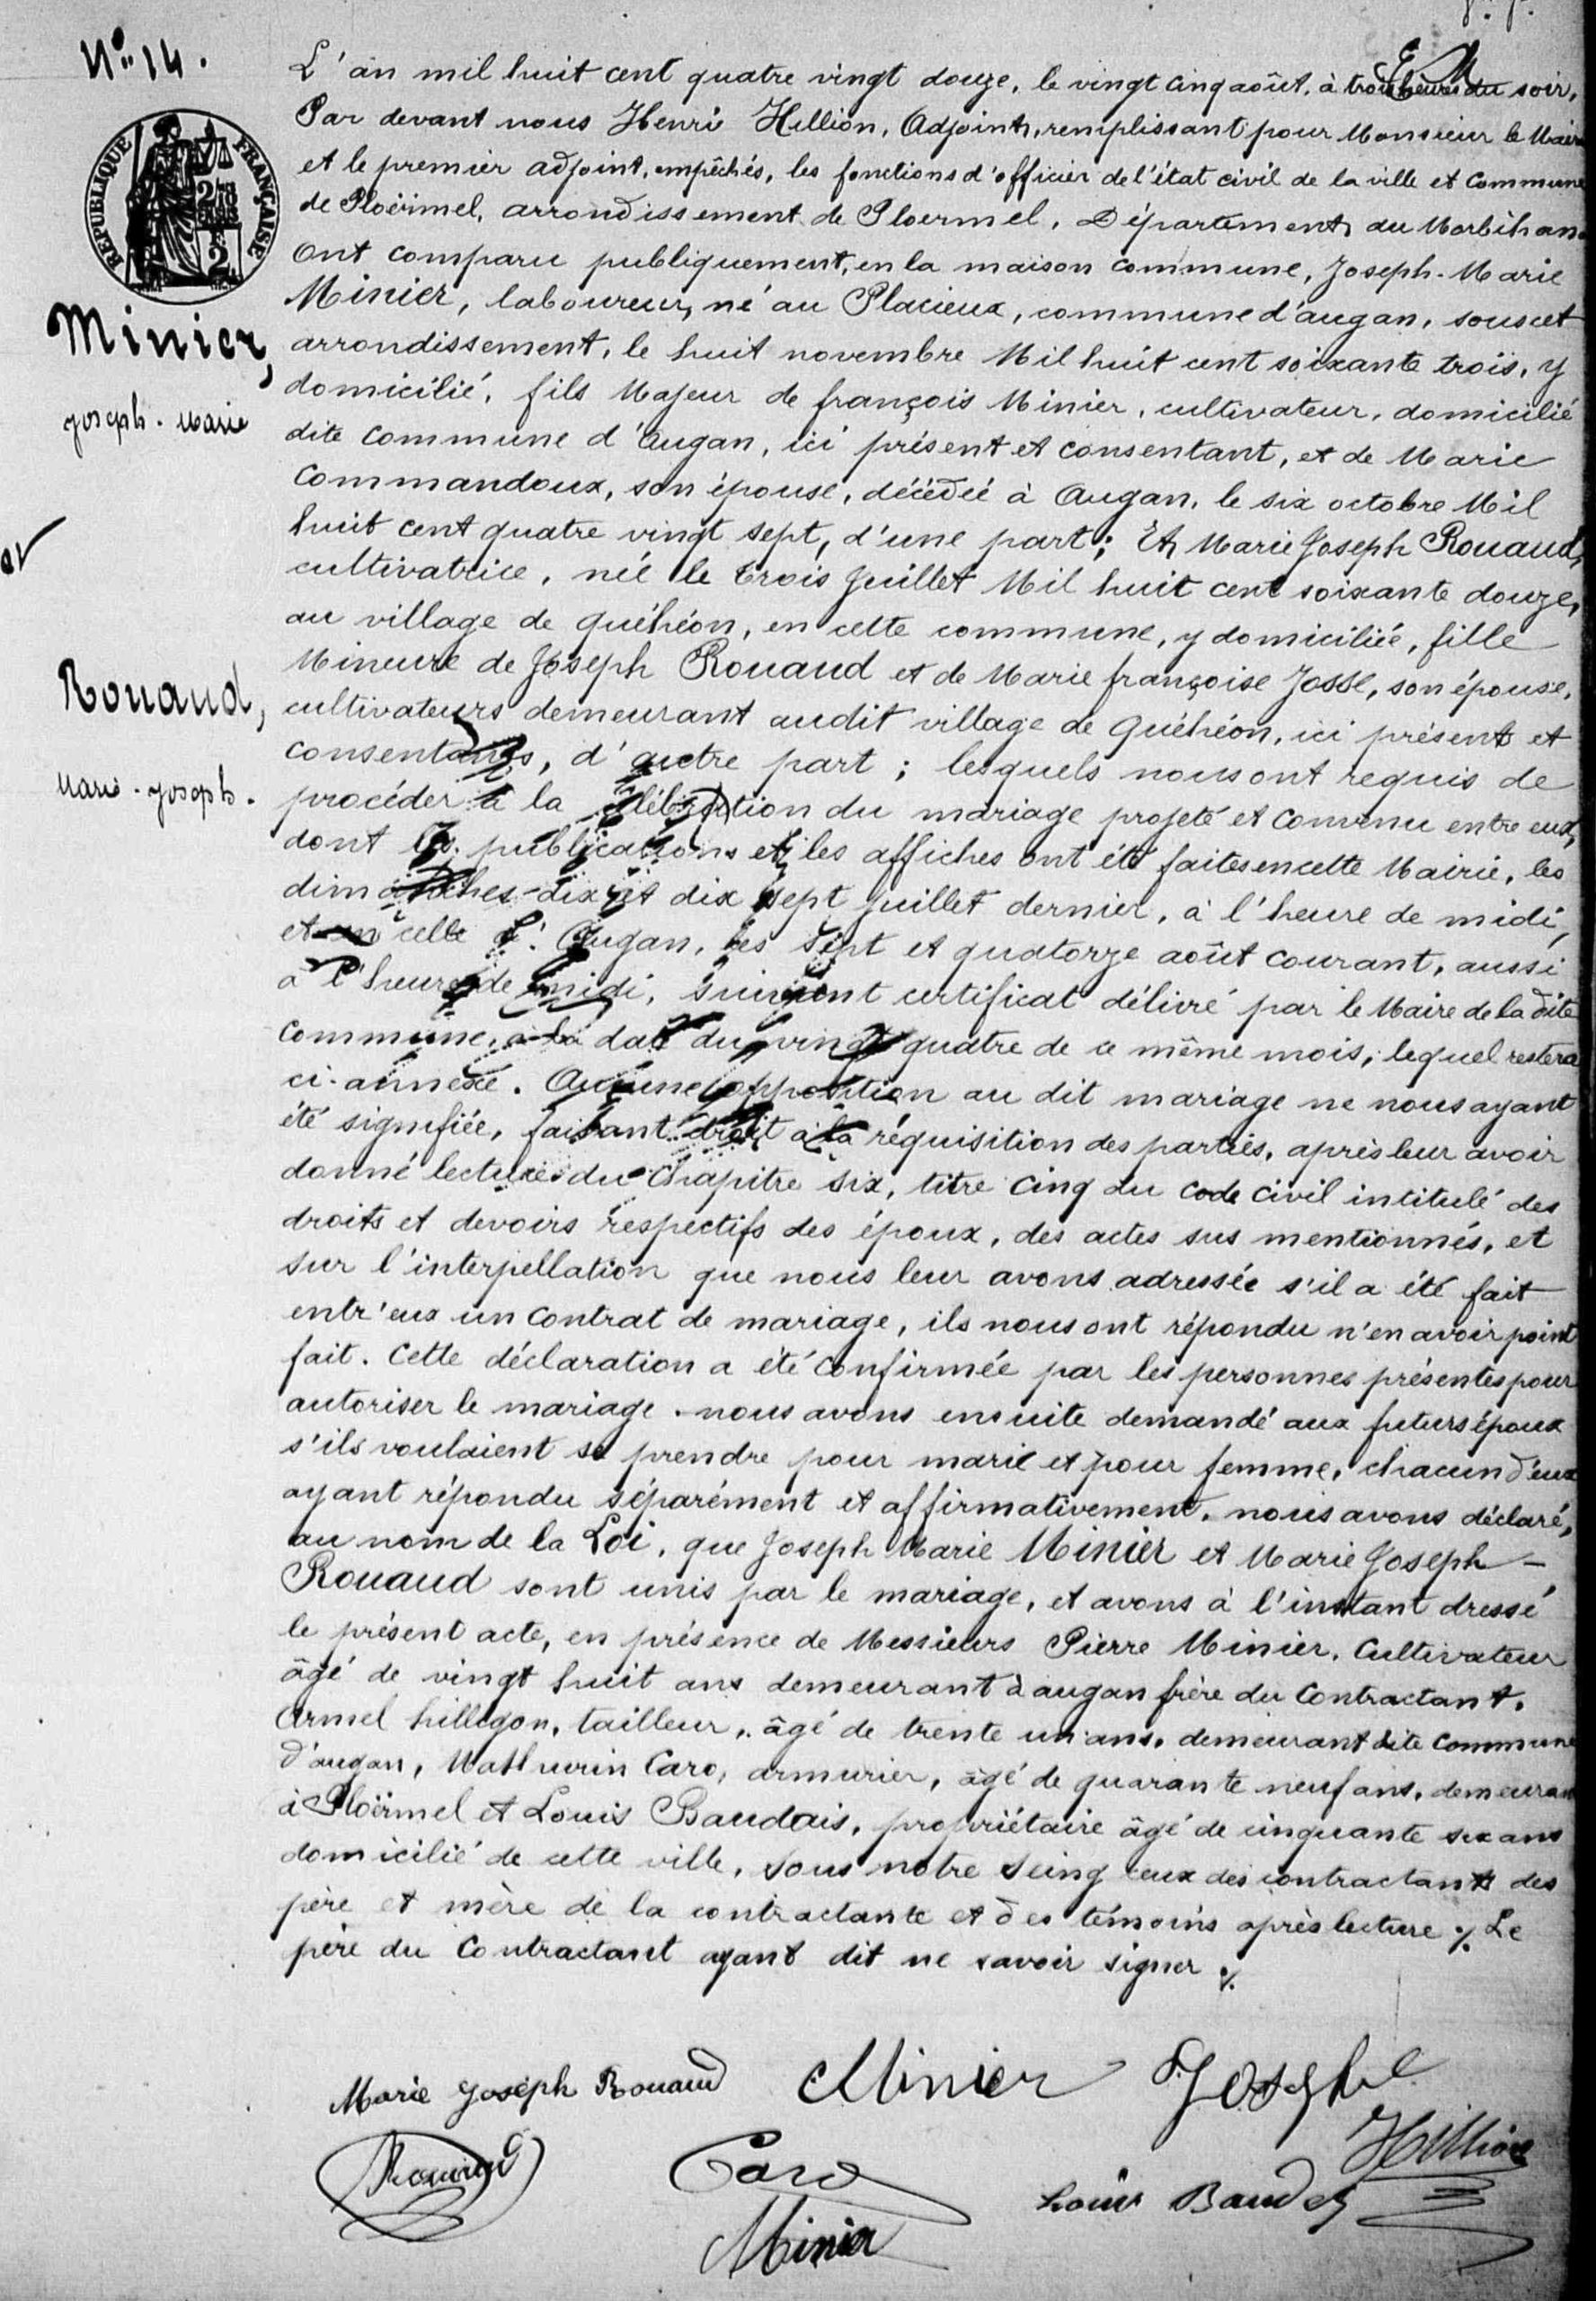 N° 14.
RÉPUBLIQUE FRANÇAISE
Minier,
Joseph-Marie
et
Rouaud,
Marie-Joseph.
L'an mil huit cent quatre vingt douze, le vingt cinq août, à trois heures du soir,
Par devant nous Henri Hillion, Adjoint, remplissant pour Monsieur le Maire
et le premier adjoint, empêchés, les fonctions d'officier de l'état civil de la ville et Commune
de Ploërmel, arrondissement de Ploermel, Département du Morbihan.
Ont comparu publiquement, en la maison commune, Joseph-Marie
Minier, laboureur, né au Placieux, commune d'augan, sous cet
arrondissement, le huit novembre Mil huit cent soixante trois, y
domicilié, fils Majeur de françois Minier, cultivateur, domicilié
dite commune d'Augan, ici présent et consentant, et de Marie
Commandoux, son épouse, décédée à Augan, le six octobre Mil
huit cent quatre vingt sept, d'une part; Et Marie Joseph Rouaud,
cultivatrice, née le trois Juillet Mil huit cent soixante douze,
au village de Quéhéon, en cette commune, y domiciliée, fille
Mineure de Joseph Rouaud et de Marie françoise Josse, son épouse,
cultivateurs demeurant audit village de Quéhéon, ici présents et
consentants, d'autre part; lesquels nous ont requis de
procéder à la célébration du mariage projeté et convenu entre eux,
dont les publications et les affiches ont été faites en cette Mairie, les
dimanches dix et dix sept juillet dernier, à l'heure de midi,
et en celle d'Augan, les sept et quatorze août courant, aussi
à l'heure de midi, suivant certificat délivré par le Maire de la dite
commune, à la date du vingt quatre de ce même mois, lequel restera
ci-annexé. Aucune opposition au dit mariage ne nous ayant
été signifiée, faisant droit à la réquisition des parties, après leur avoir
donné lecture du Chapitre six, titre cinq du code civil intitulé des
droits et devoirs respectifs des époux, des actes sus mentionnés, et
sur l'interpellation que nous leur avons adressée s'il a été fait
entr'eux un contrat de mariage, ils nous ont répondu n'en avoir point
fait. Cette déclaration a été confirmée par les personnes présentes pour
autoriser le mariage. nous avons ensuite demandé aux futurs époux
s'ils voulaient se prendre pour marie et pour femme, chacun d'eux
ayant répondu séparément et affirmativement, nous avons déclaré,
au nom de la Loi, que Joseph Marie Minier et Marie Joseph -
Rouaud sont unis par le mariage, et avons à l'instant dressé
le présent acte, en présence de Messieurs Pierre Minier, Cultivateur
âgé de vingt huit ans demeurant à augan frère du Contractant.
Armel hillegon, tailleur, âgé de trente un ans, demeurant dite Commune
d'augan, Mathurin Caro, armurier, âgé de quarante neuf ans, demeurant
à Ploërmel et Louis Baudais, propriétaire âgé de cinquante six ans
domicilié de cette ville, sous notre seing ceux des contractants des
père et mère de la contractante et des témoins après lecture ./. Le
père du Contractant ayant dit ne savoir signer ./.
Marie Joseph Rouaud Minier Joseph
Rouaud Caro Hillion
Louis Baudais
Minier